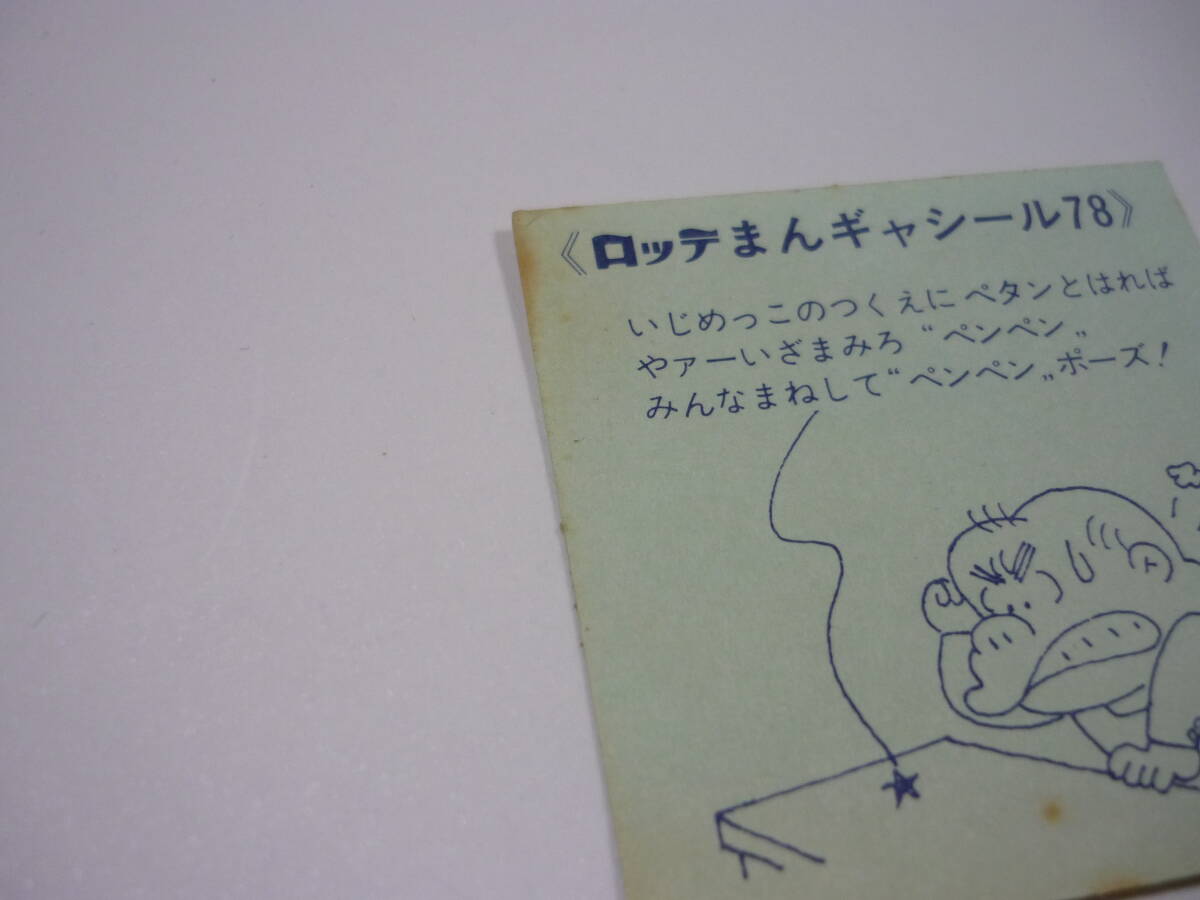 《ロッテまんギャシール78》
いじめっこのつくえにペタンとはれば
やァーいざまみろ“ペンペン„
みんなまねして“ペンペン„ポーズ！